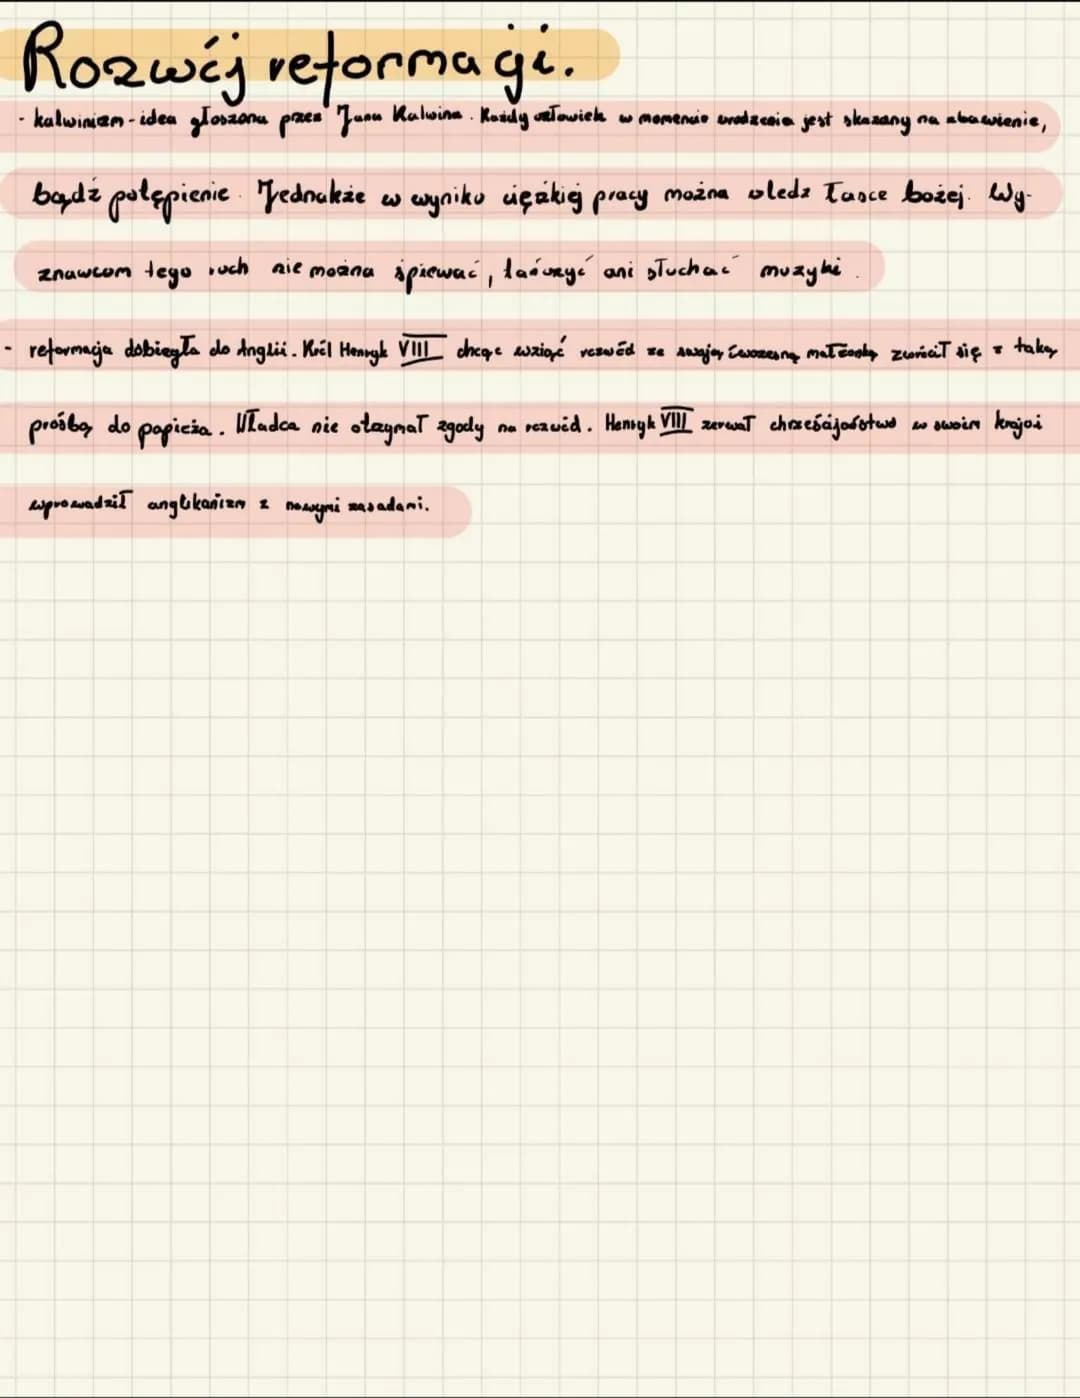 Rozwój reformacji.
- kalwinizm - idea głoszona przez Jana Kalwina. Każdy człowiek w momencie urodzenia jest skazany na zbawienie,
bądź potępienie. Jednakże w wyniku ciężkiej pracy można uledz łasce bożej. Wy-
znawcom tego ruch nie można śpiewać, tańczyć ani słuchać muzyki.
- reformacja dobiegła do Anglii. Król Henryk VIII chcąc wziąć rozwód ze swoją ówczesną małżonką zwrócił się z taką
prośbą do papieża. Władca nie otzymał zgody na rozwód. Henryk VIII zerwał chrześcijaństwo w swoim kraju i
wprowadził anglikanizm z nowymi zasadami.